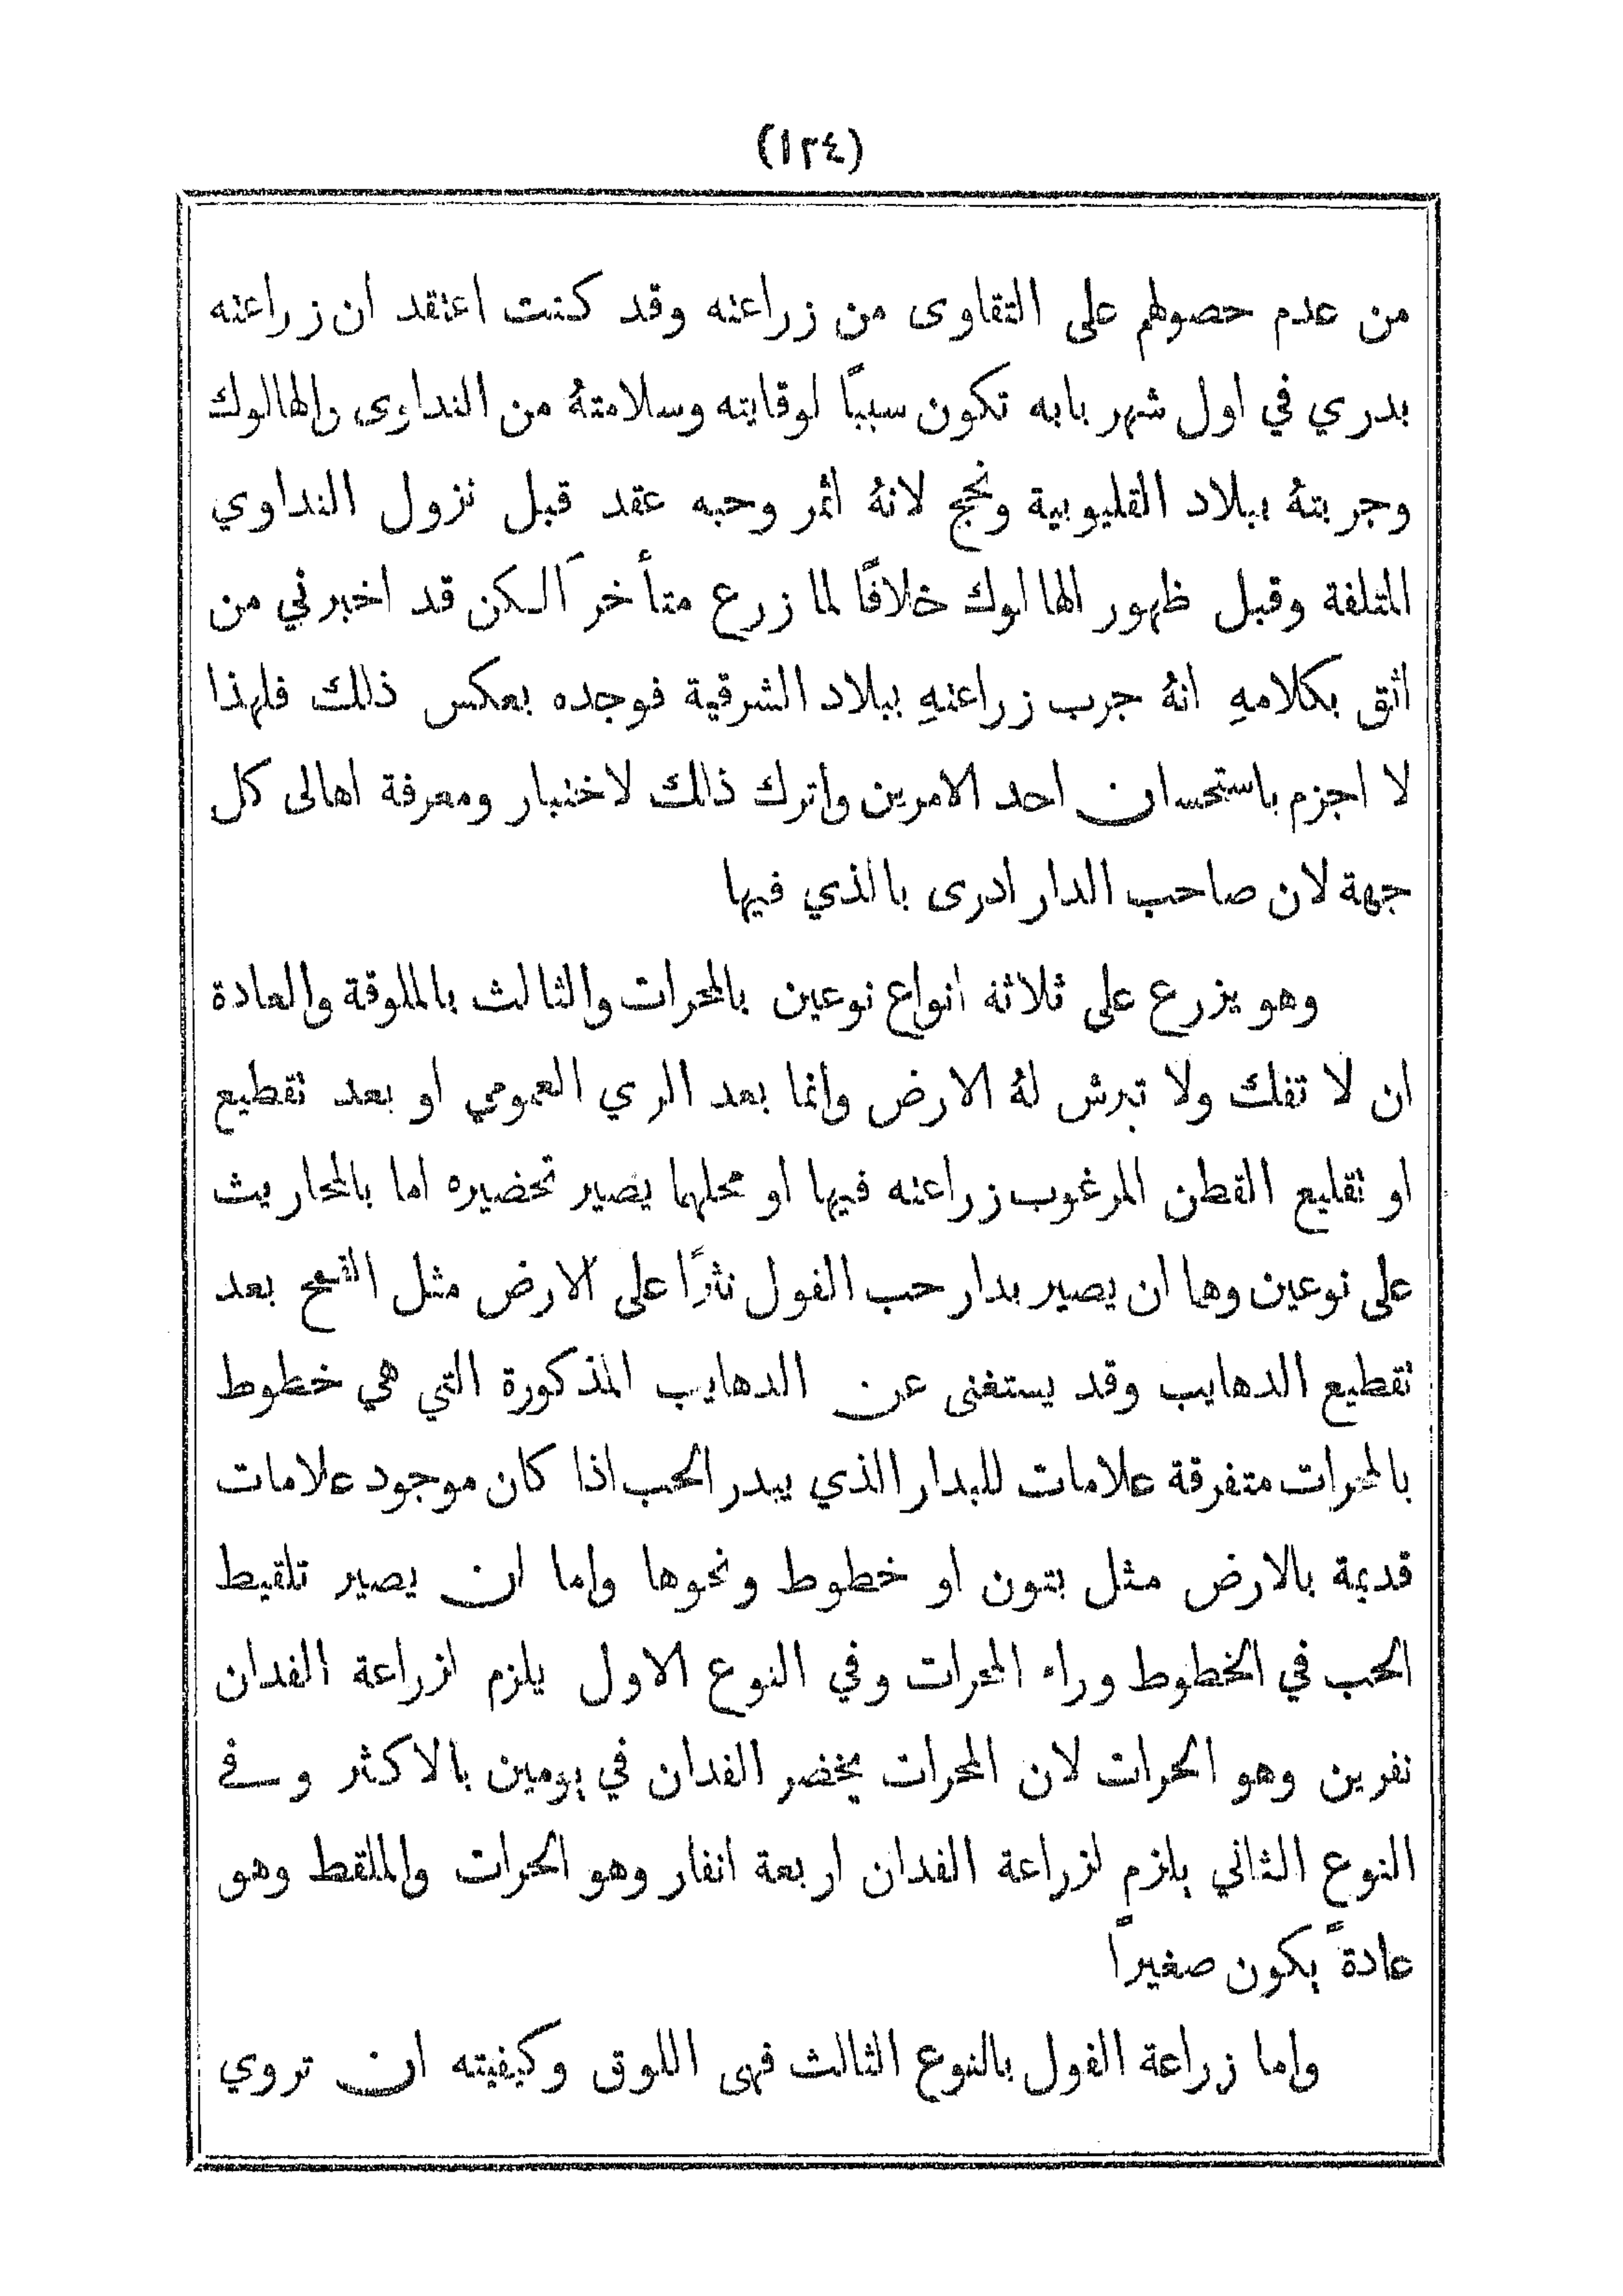 (١٢٤)
من عدم حصولهم على التقاوى من زراعته وقد كنت اعتقد ان زراعته
بدري في اول شهر بابه تكون سببًا لوقايته وسلامتهُ من النداوى والهالوك
وجربتهُ ببلاد القليوبية ونجح لانهُ اثمر وحبه عقد قبل نزول النداوي
المتلفة وقبل ظهور الهالوك خلافًا لما زرع متأخرًا لكن قد اخبرني من
اثق بكلامهِ انهُ جرب زراعتهِ ببلاد الشرقية فوجده بعكس ذلك فلهذا
لا اجزم باستحسان احد الامرين واترك ذالك لاختبار ومعرفة اهالى كل
جهة لان صاحب الدار ادرى بالذي فيها
وهو يزرع على ثلاثة انواع نوعين بالمحرات والثالث بالملوقة والعادة
ان لا تفك ولا تبرش لهُ الارض وانما بعد الري العمومي او بعد تقطيع
او تقليع القطن المرغوب زراعته فيها او محلهما يصير تحضيره اما بالمحاريث
على نوعين وهما ان يصير بدار حب الفول نثرًا على الارض مثل القمح بعد
تقطيع الدهايب وقد يستغنى عن الدهايب المذكورة التي هي خطوط
بالمحرات متفرقة علامات للبدار الذي يبدر الحب اذا كان موجود علامات
قديمة بالارض مثل بتون او خطوط ونحوها واما ان يصير تلقيط
الحب في الخطوط وراء المحرات وفي النوع الاول يلزم لزراعة الفدان
نفرين وهو الحرات لان المحرات يخضر الفدان في يومين بالاكثر وفي
النوع الثاني يلزم لزراعة الفدان اربعة انفار وهو الحرات والملقط وهو
عادةً يكون صغيرًا
واما زراعة الفول بالنوع الثالث فهى اللوق وكيفيته ان تروي